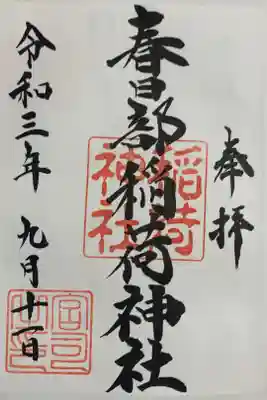 奉拝
春日部稲荷神社
稲荷神社
令和三年 九月十一日